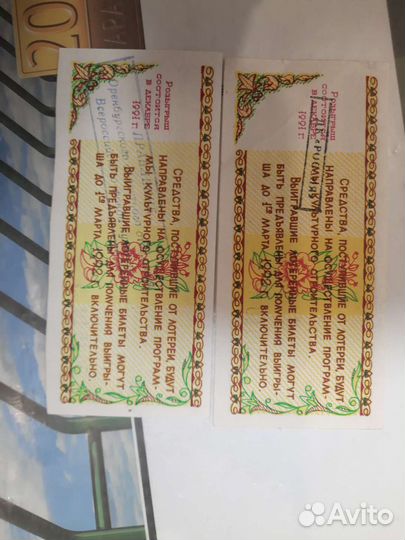 20
Розыгрыш
состоится
в декабре
1991 г.
Оренбургско
Всеросси
СРЕДСТВА, ПОСТУПИВШИЕ ОТ ЛОТЕРЕИ, БУДУТ
НАПРАВЛЕНЫ НА ОСУЩЕСТВЛЕНИЕ ПРОГРАМ-
МЫ КУЛЬТУРНОГО СТРОИТЕЛЬСТВА
ВЫИГРАВШИЕ ЛОТЕРЕЙНЫЕ БИЛЕТЫ МОГУТ
БЫТЬ ПРЕДЪЯВЛЕНЫ ДЛЯ ПОЛУЧЕНИЯ ВЫИГРЫ-
ША ДО 1го МАРТА 1992 г. ВКЛЮЧИТЕЛЬНО
Розыгрыш
состоится
в декабре
1991 г.
СРЕДСТВА, ПОСТУПИВШИЕ ОТ ЛОТЕРЕИ, БУДУТ
НАПРАВЛЕНЫ НА ОСУЩЕСТВЛЕНИЕ ПРОГРАМ-
МЫ КУЛЬТУРНОГО СТРОИТЕЛЬСТВА
ВЫИГРАВШИЕ ЛОТЕРЕЙНЫЕ БИЛЕТЫ МОГУТ
БЫТЬ ПРЕДЪЯВЛЕНЫ ДЛЯ ПОЛУЧЕНИЯ ВЫИГРЫ-
ША ДО 1го МАРТА 1992 г. ВКЛЮЧИТЕЛЬНО
Avito